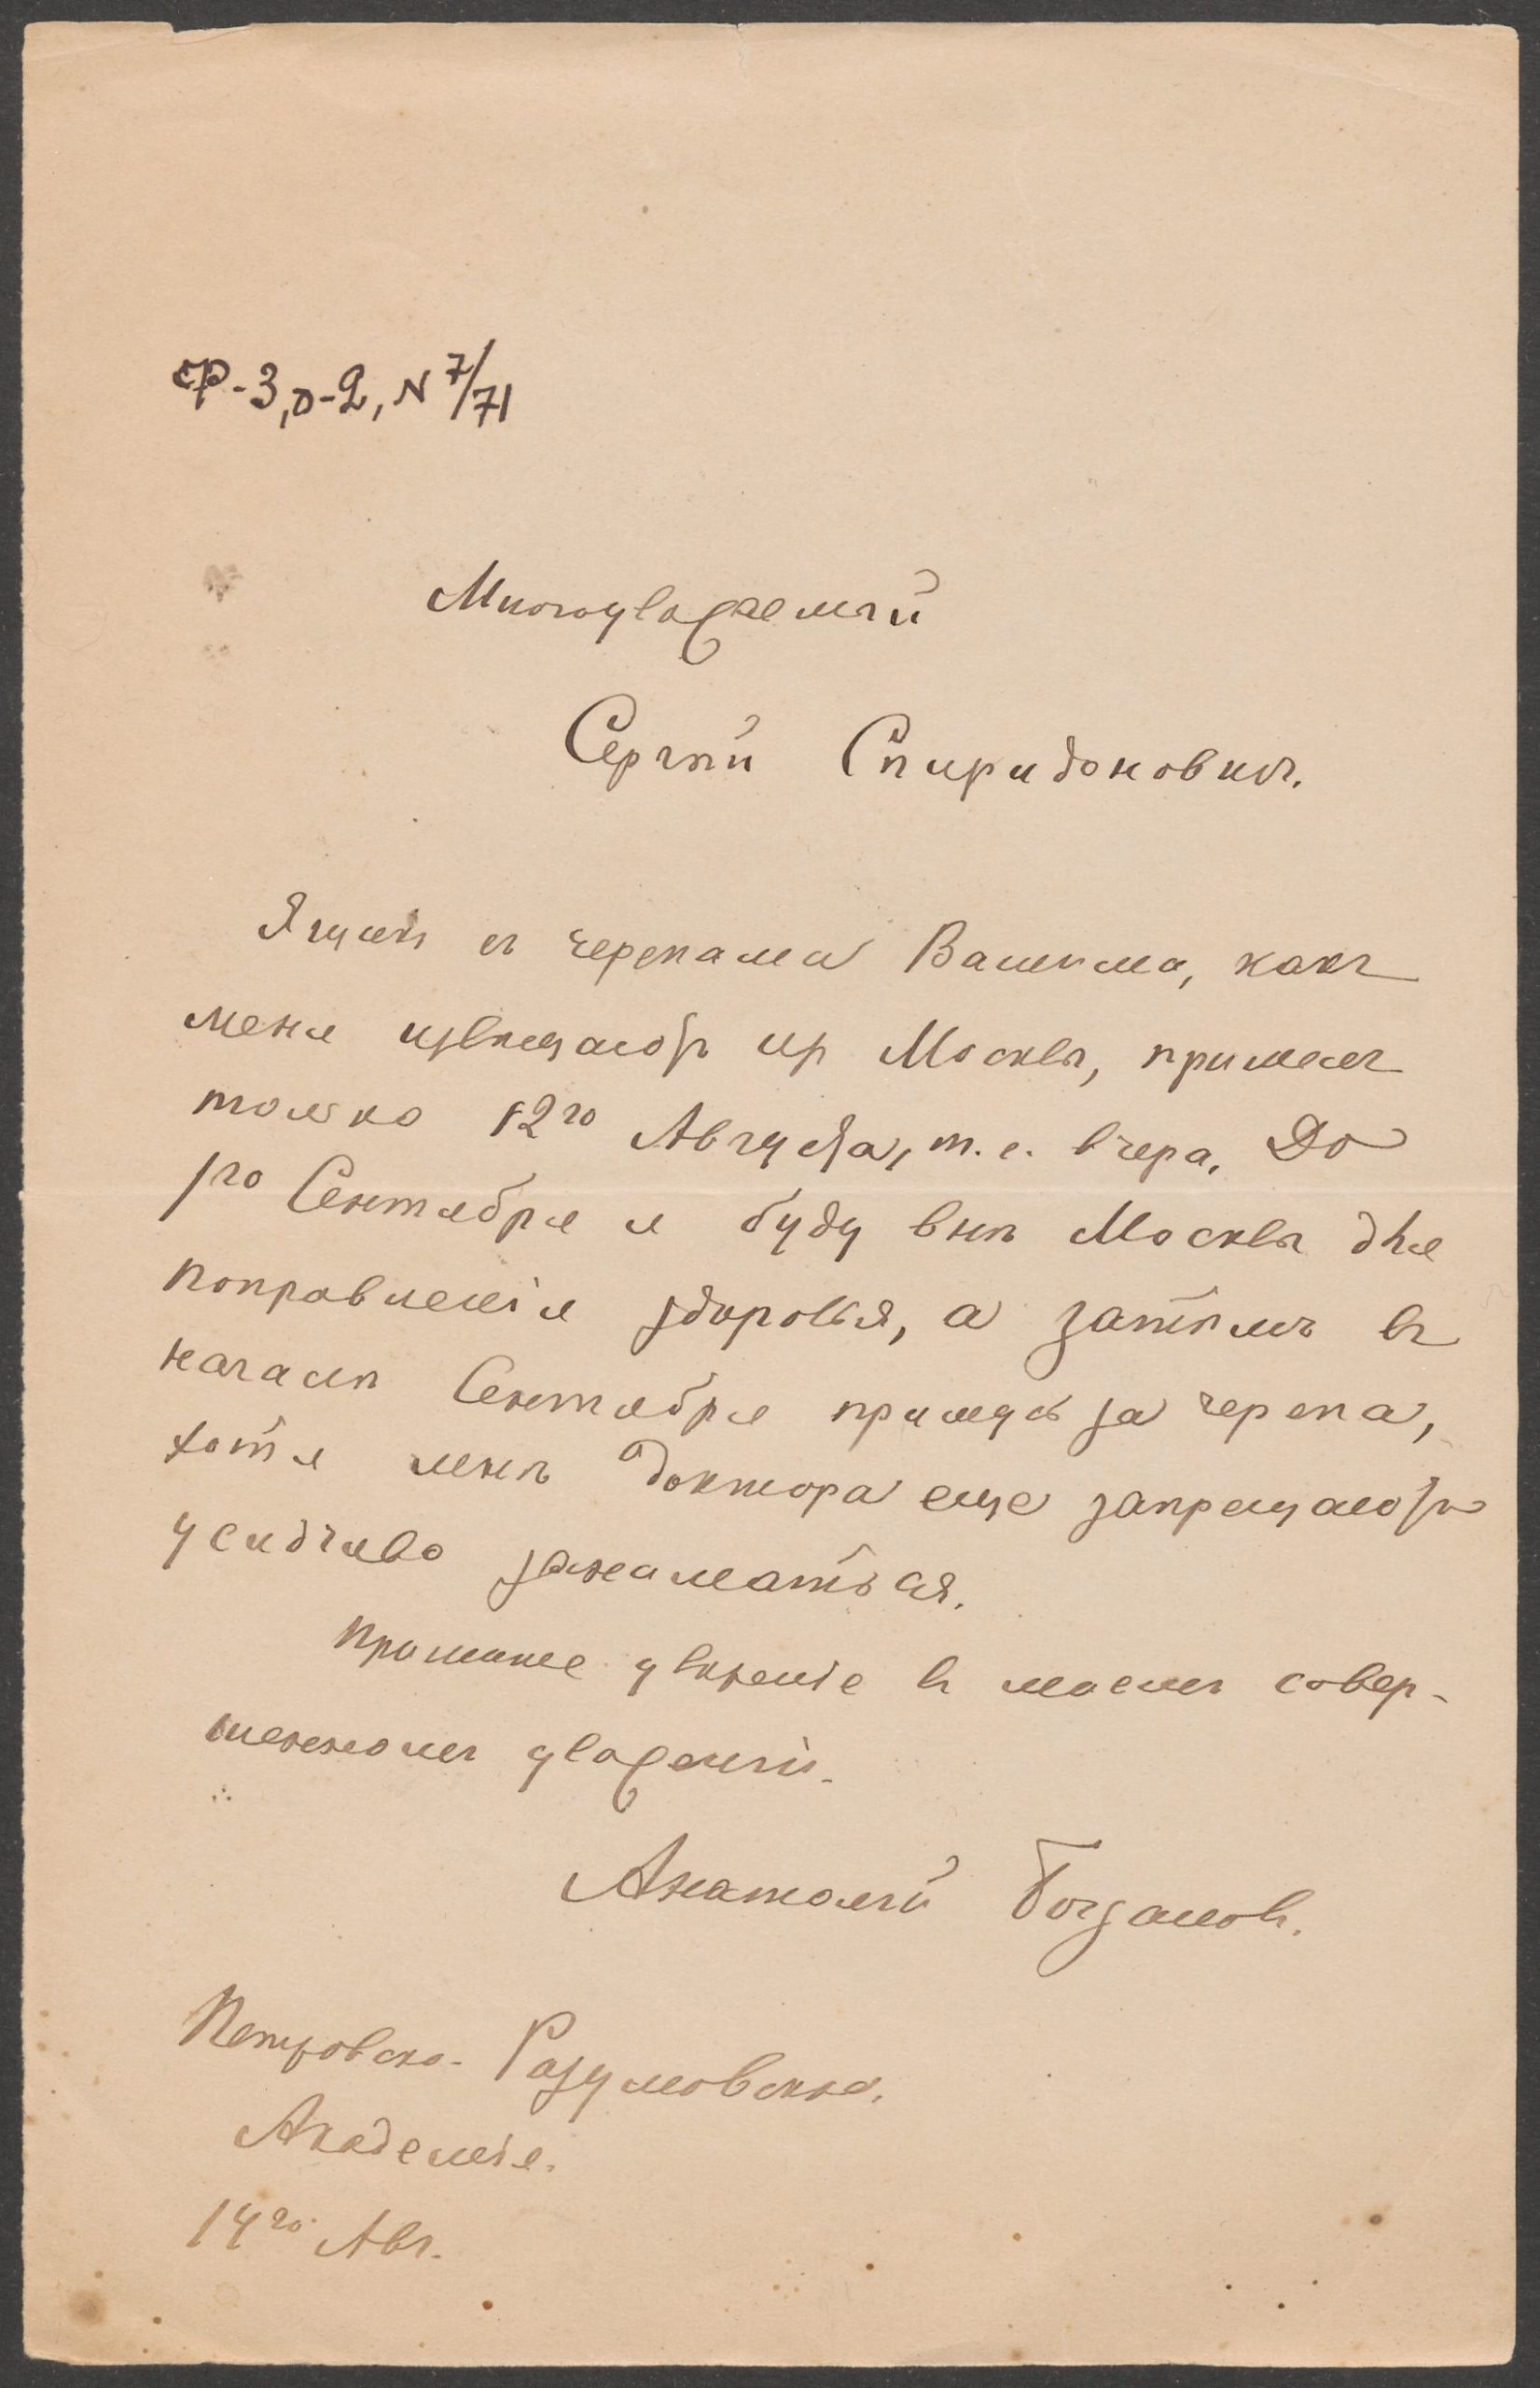 ф-3, о-2, N 7/71
Многоуважаемый
Сергѣй Спиридоновичъ.
Ящикъ съ черепами Вашими, какъ
меня извѣщаютъ изъ Москвы, пришелъ
только 12го Августа, т. е. вчера. До
1го Сентября я буду внѣ Москвы для
поправленія здоровья, а затѣмъ въ
началѣ Сентября примусь за черепа,
хотя мнѣ доктора еще запрещаютъ
усидчиво заниматься.
Примите увѣреніе въ моемъ совер-
шенномъ уваженіи.
Анатолій Богдановъ.
Петровско-Разумовское.
Академія.
14го Авг.